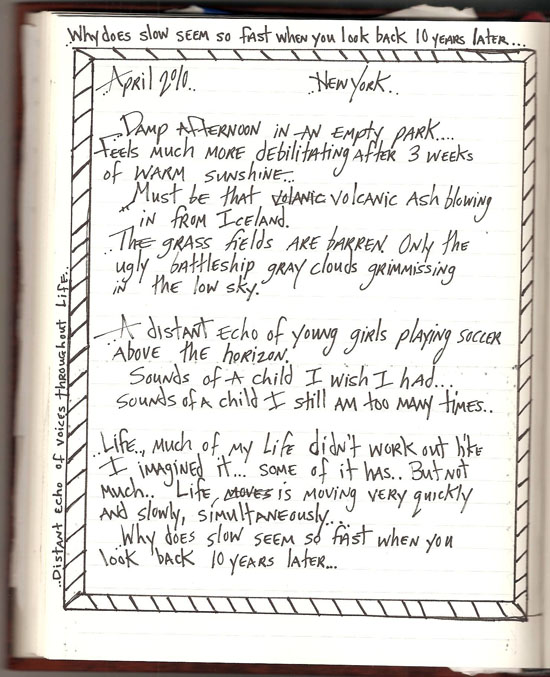 Why does slow seem so fast when you look back 10 years later...
..April 2010..
..New York..
..Damp afternoon in an empty park....
Feels much more debilitating after 3 weeks
of warm sunshine...
..Must be that volanic volcanic ash blowing
in from Iceland.
..The grass fields are barren. Only the
ugly battleship gray clouds grimmissing
in the low sky.
..A distant echo of young girls playing soccer
above the horizon.
Sounds of a child I wish I had...
Sounds of a child I still am too many times..
..Life.., much of my life didn't work out like
I imagined it... some of it has.. But not
much.. Life, moves is moving very quickly
and slowly, simultaneously..
..Why does slow seem so fast when you
look back 10 years later...
..Distant echo of voices throughout life..